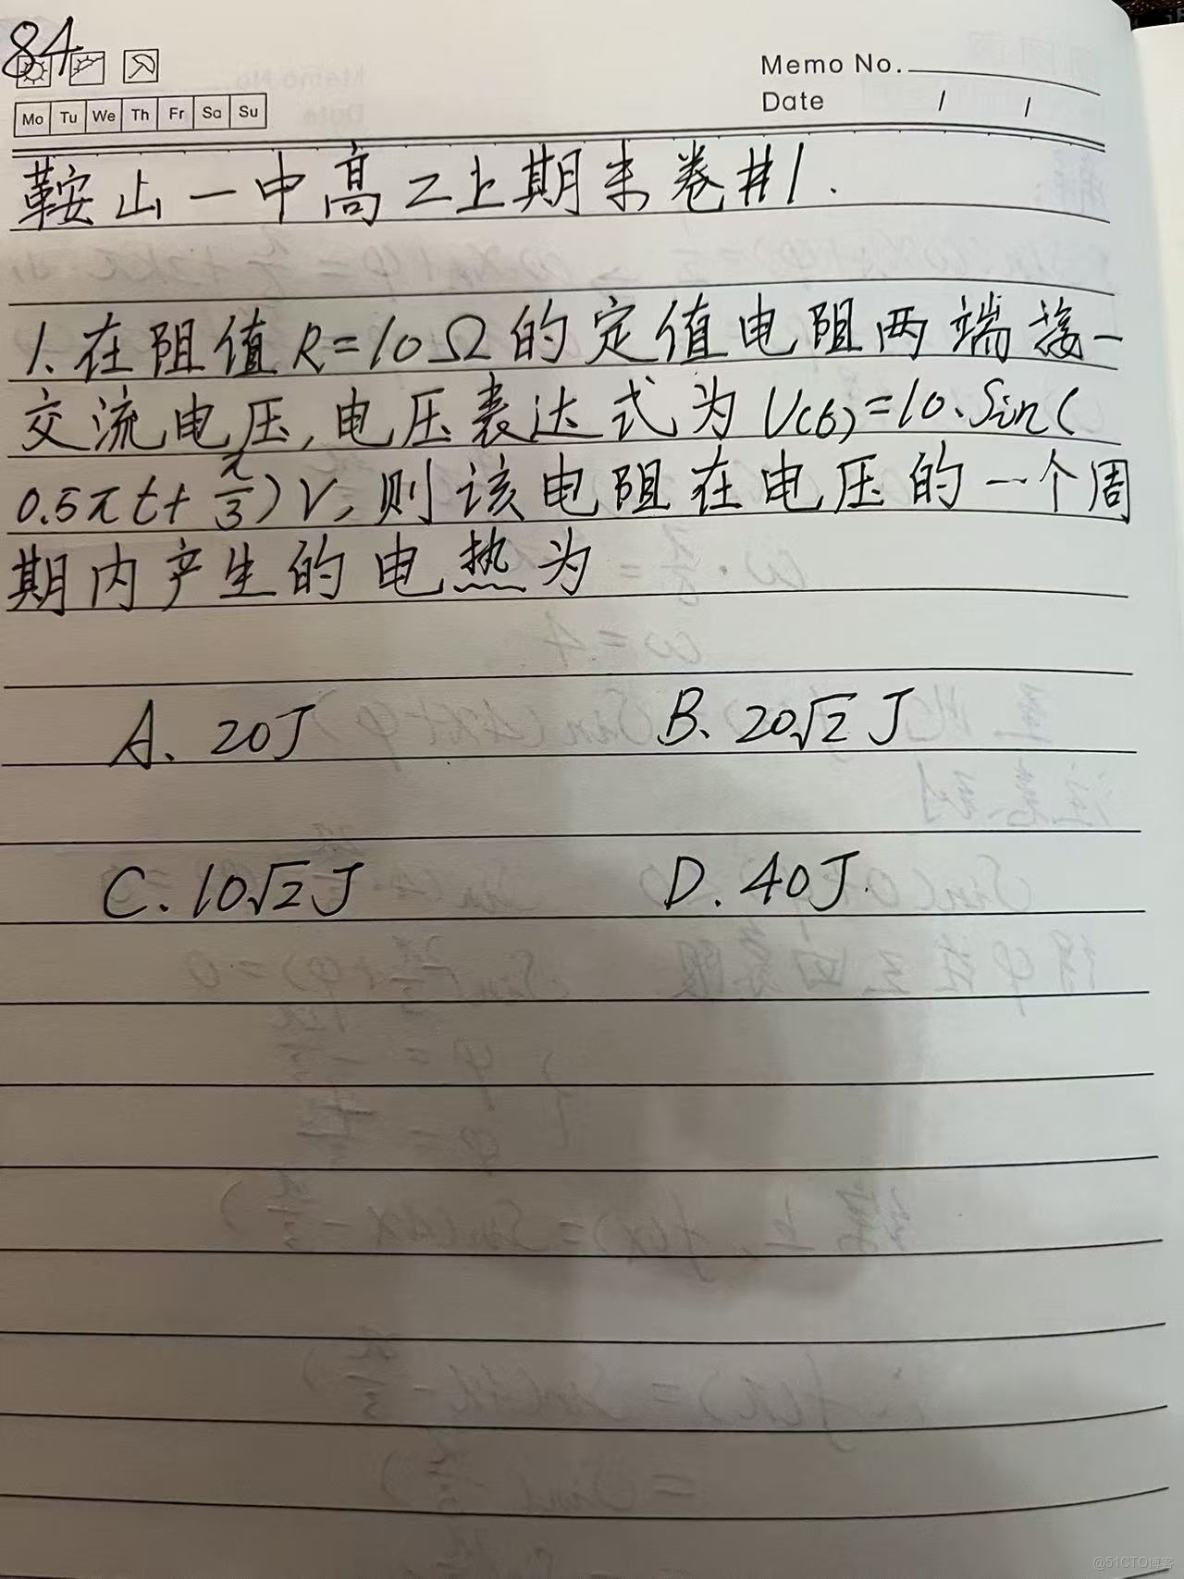 84
Memo No.
Mo Tu We Th Fr Sa Su
Date / /
鞍山一中高二上期末卷#1.
1.在阻值R=10Ω的定值电阻两端接一
交流电压,电压表达式为U(t)=10·Sin(
0.5πt+π/3)V,则该电阻在电压的一个周
期内产生的电热为
A、20J B、20√2 J
C.10√2J D.40J.
@51CTO博客